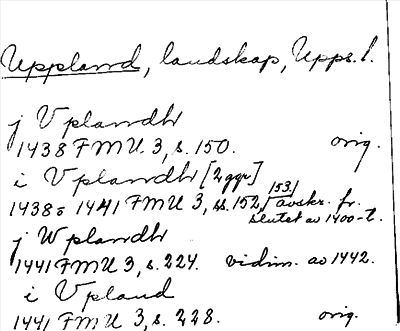 Uppland, landskap, Upps. l.
j Vplandh
1438 FMU. 3, s. 150. orig.
i Vplandh [2 ggr]
1438 o 1441 FMU 3, ss. 152, 153. avskr. fr. slutet av 1400-t.
j Wplandh
1441 FMU 3, s. 224. vidim. av 1442.
i Vpland
1441 FMU 3, s. 228. orig.